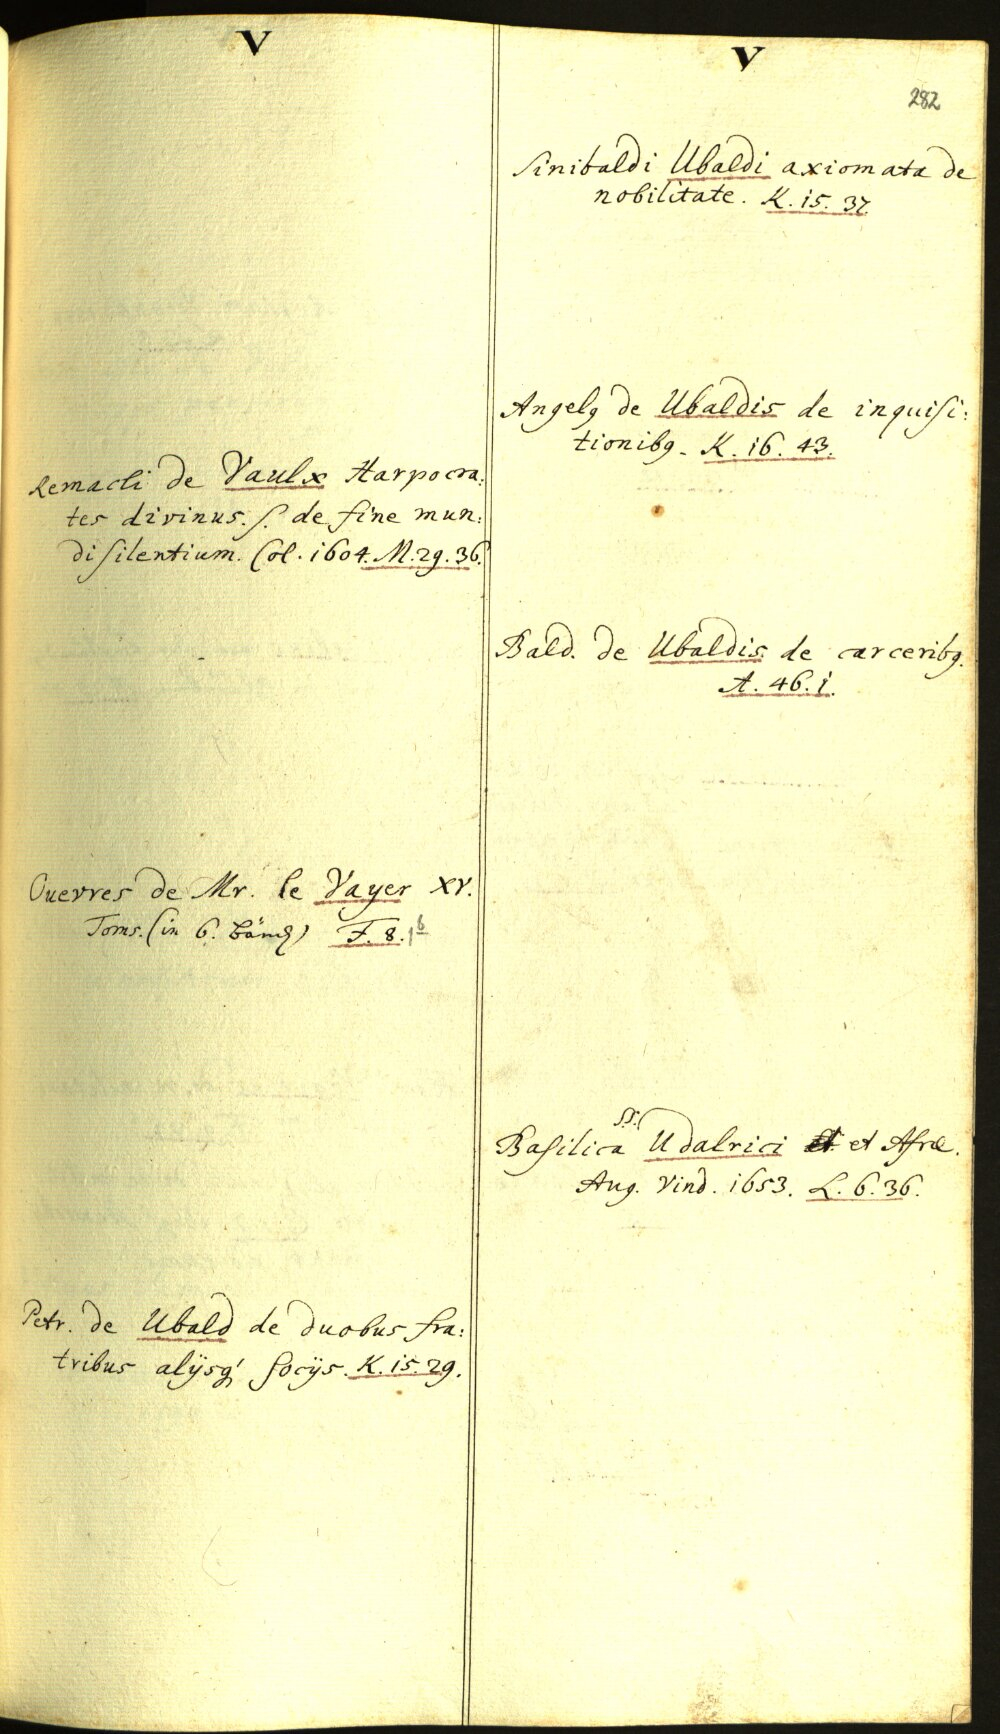 V
Remacli de Vaulx Harpocra:
tes divinus. s. de fine mun:
di silentium. Col. 1604. M. 29. 36.
Ouevres de Mr. le Vayer XV.
Toms. (in 6. Bänd) F. 8. 1b
Petr. de Ubald de duobus fra:
tribus alijsq' socijs. K. 15. 29.
V
282
Sinibaldi Ubaldi axiomata de
nobilitate. K. 15. 37.
Angelq de Ubaldis de inquisi:
tionibq. K. 16. 43.
Bald. de Ubaldis de carceribq.
A. 46. 1.
SS.
Basilica Udalrici et Afræ.
Aug. Vind. 1653. L. 6. 36.